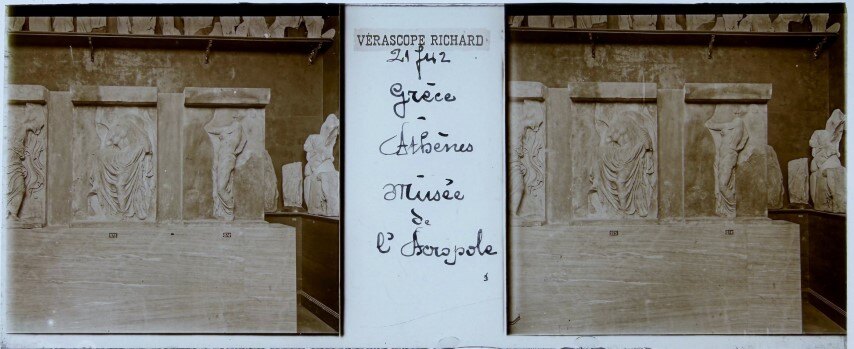 VÉRASCOPE RICHARD
Grèce
Athènes
Musée
de
l'Acropole